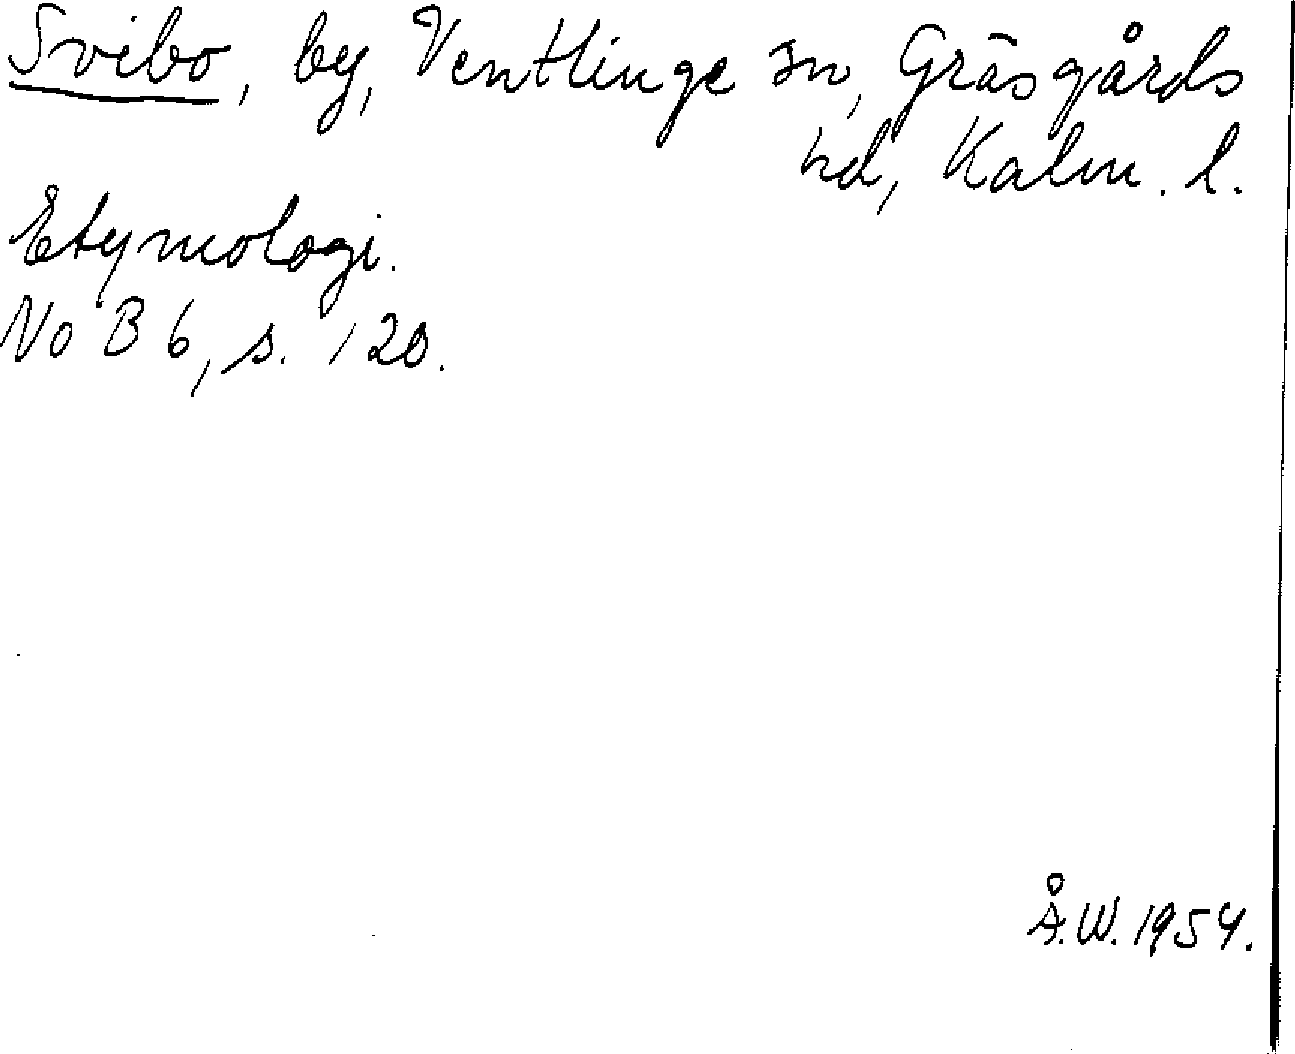 Svibo, by, Ventlinge sn, Gräsgårds
hd, Kalm. l.
Etymologi.
NoB 6, s. 120.
Å.W. 1954.